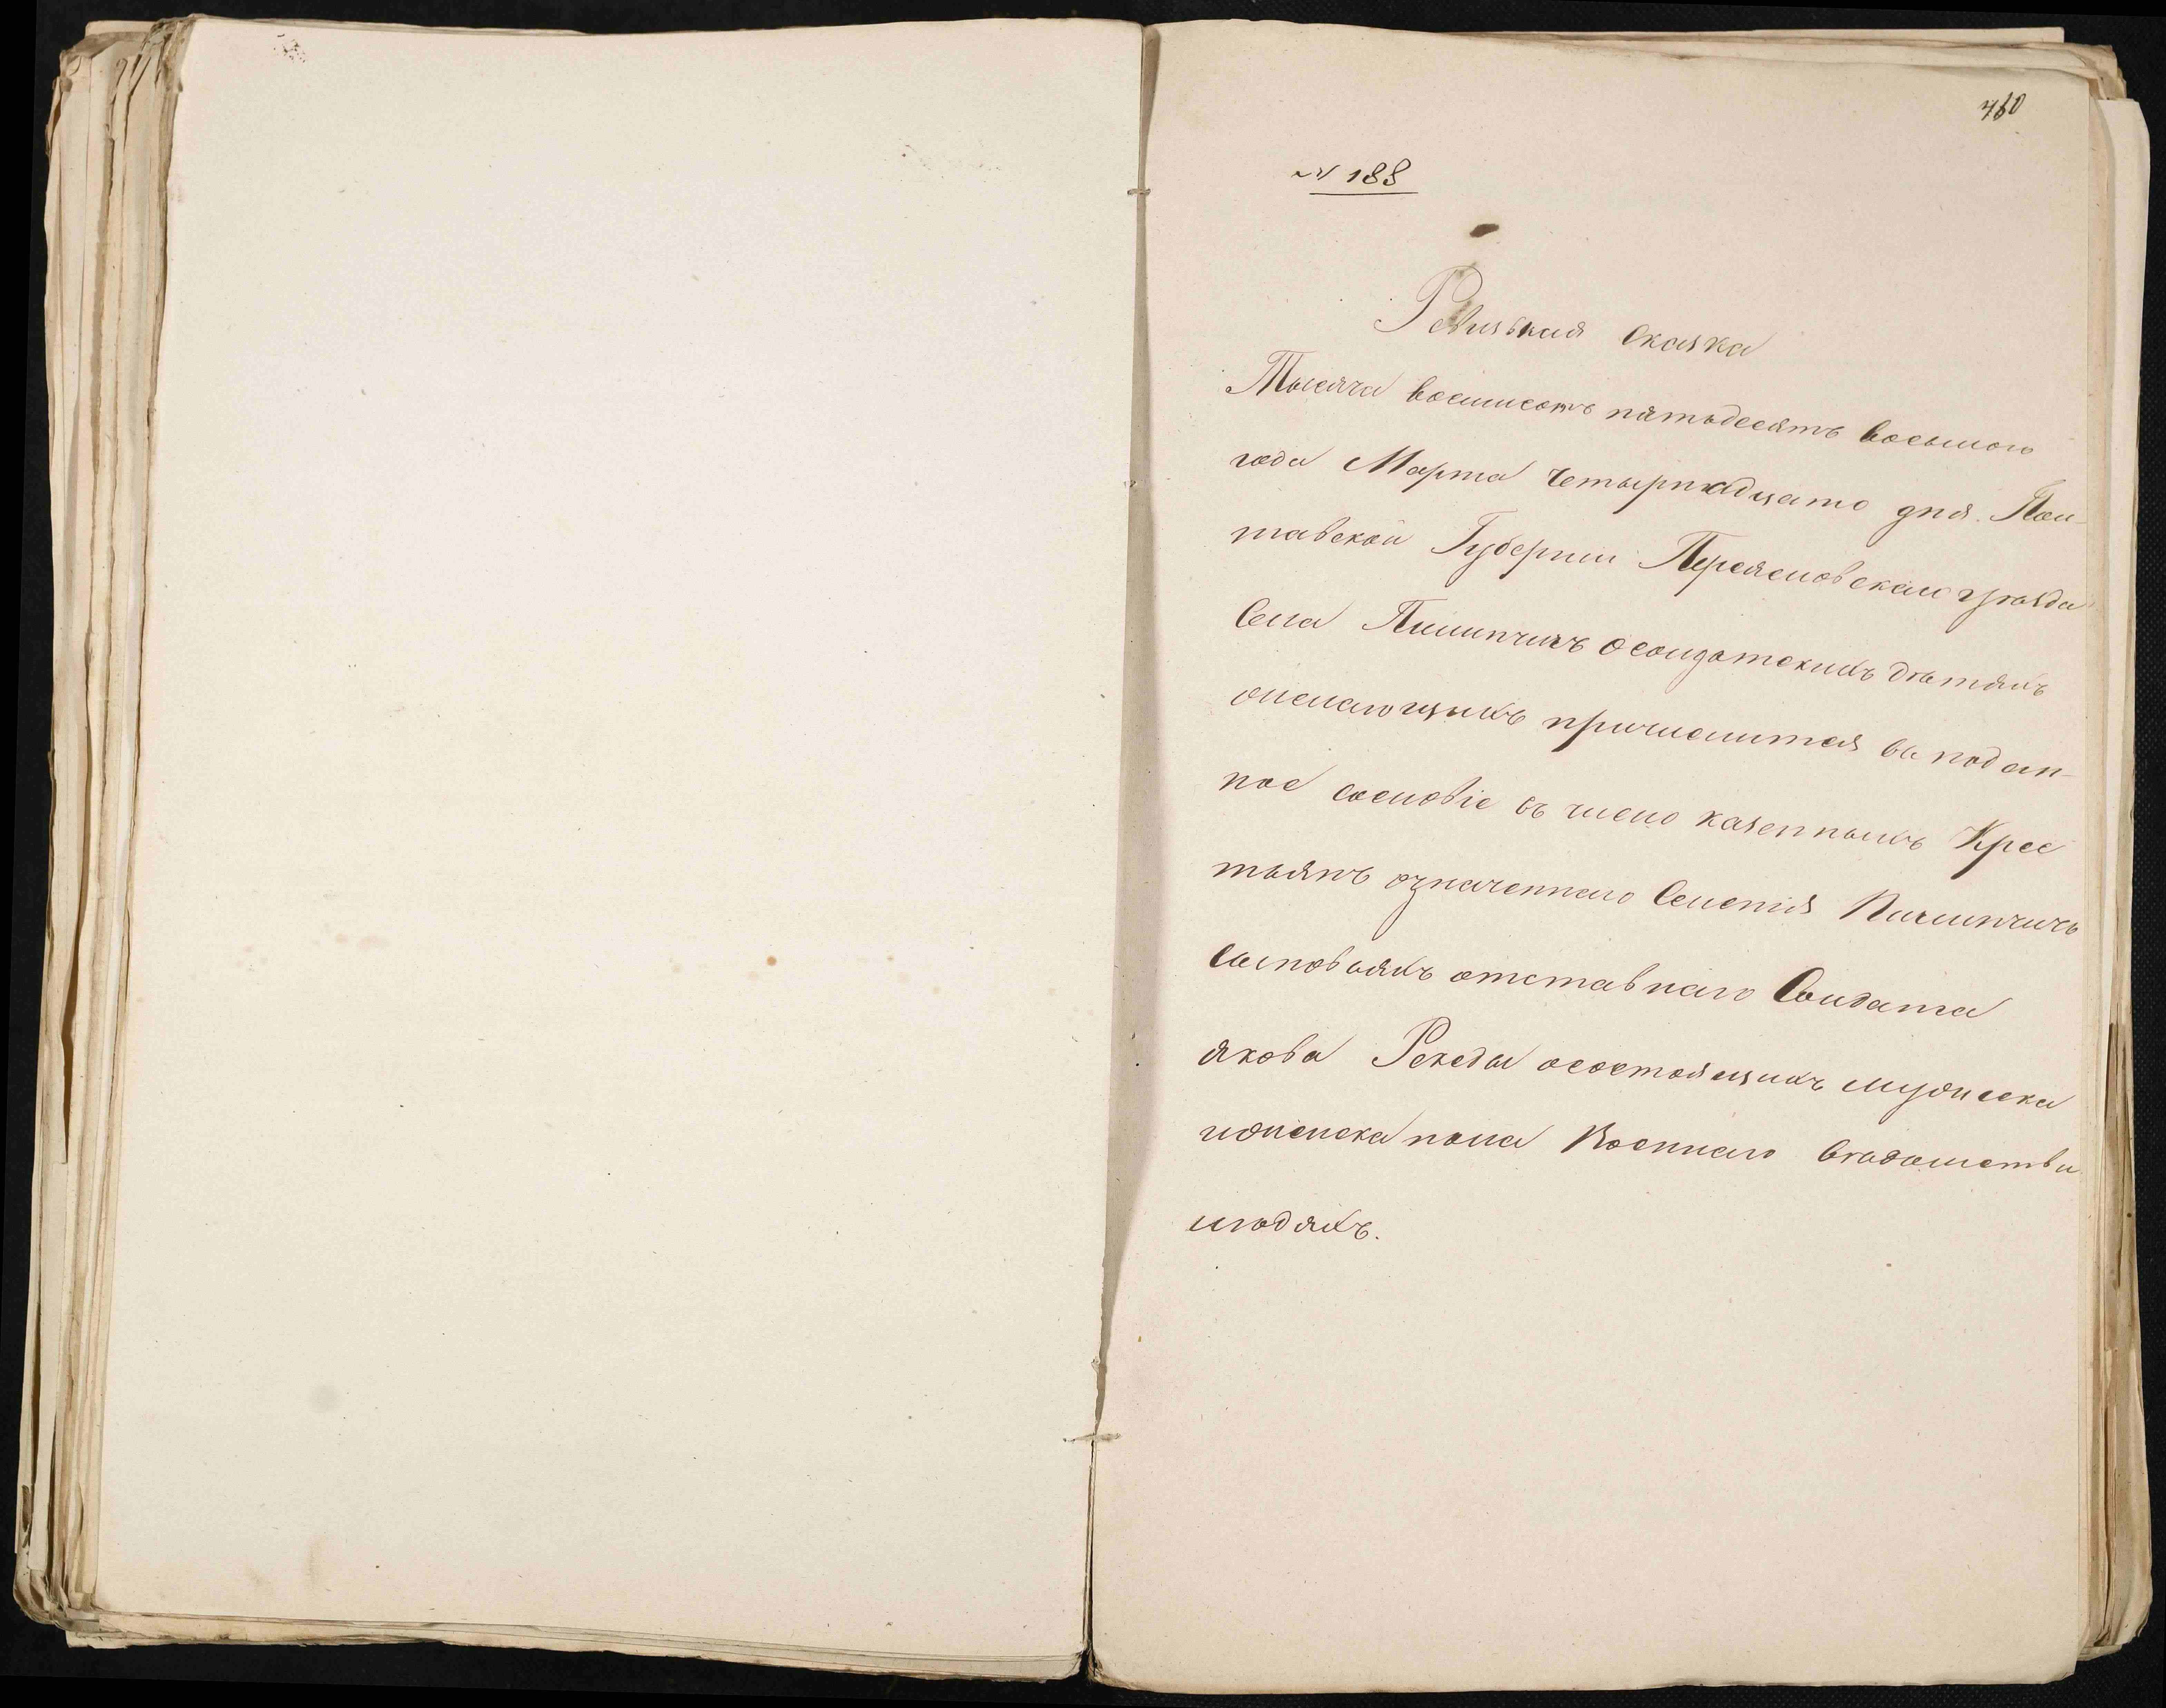 460
№ 188
Ревизькая сказка
Тысяча восемисотъ пятьдесятъ восьмого
года Марта Четырнадцато дня. Пол-
тавской Губернии Переяславского уѣзда
Села Пилипчичъ осолдатскихъ дѣтяхъ
желающихъ причислится въ подат-
ное сословіе въ число казенныхъ Крес
тьянъ означенного Селенія Пилипчичъ
сыновьяхъ отставнаго Солдата
Якова осостоящихъ мужеска
иженска пола Военнаго Вѣдомства
людяхъ.